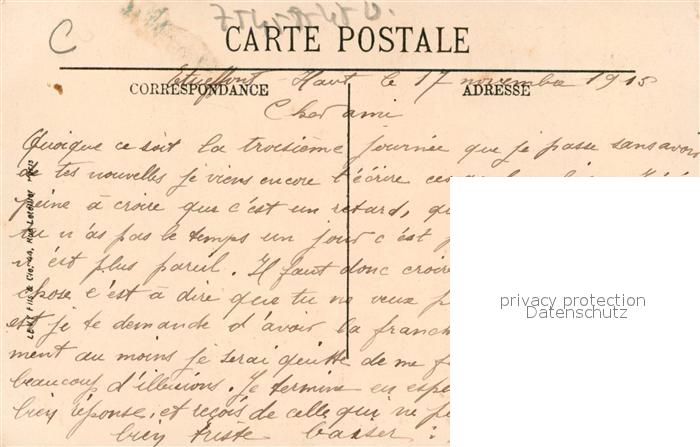 C
CARTE POSTALE
Etueffont-Haut le 17 novembre 1915
CORRESPONDANCE
ADRESSE
Cher ami
Quoique ce soit la troisième journée que je passe sans avoir
de tes nouvelles je viens encore t'écrire ces
peine à croire que c'est un retard,
tu n'as pas le temps un jour c'est
n'est plus pareil. Il faut donc croire
chose c'est à dire que tu ne veux
est je te demande d'avoir la franch
ment au moins je serai quitte de me f
beaucoup d'illusions. Je termine en espé
bien réponse, et reçois de celle qui ne
bien triste baiser :
privacy protection
Datenschutz